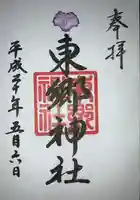 奉拝
東郷神社
平成三十年五月六日